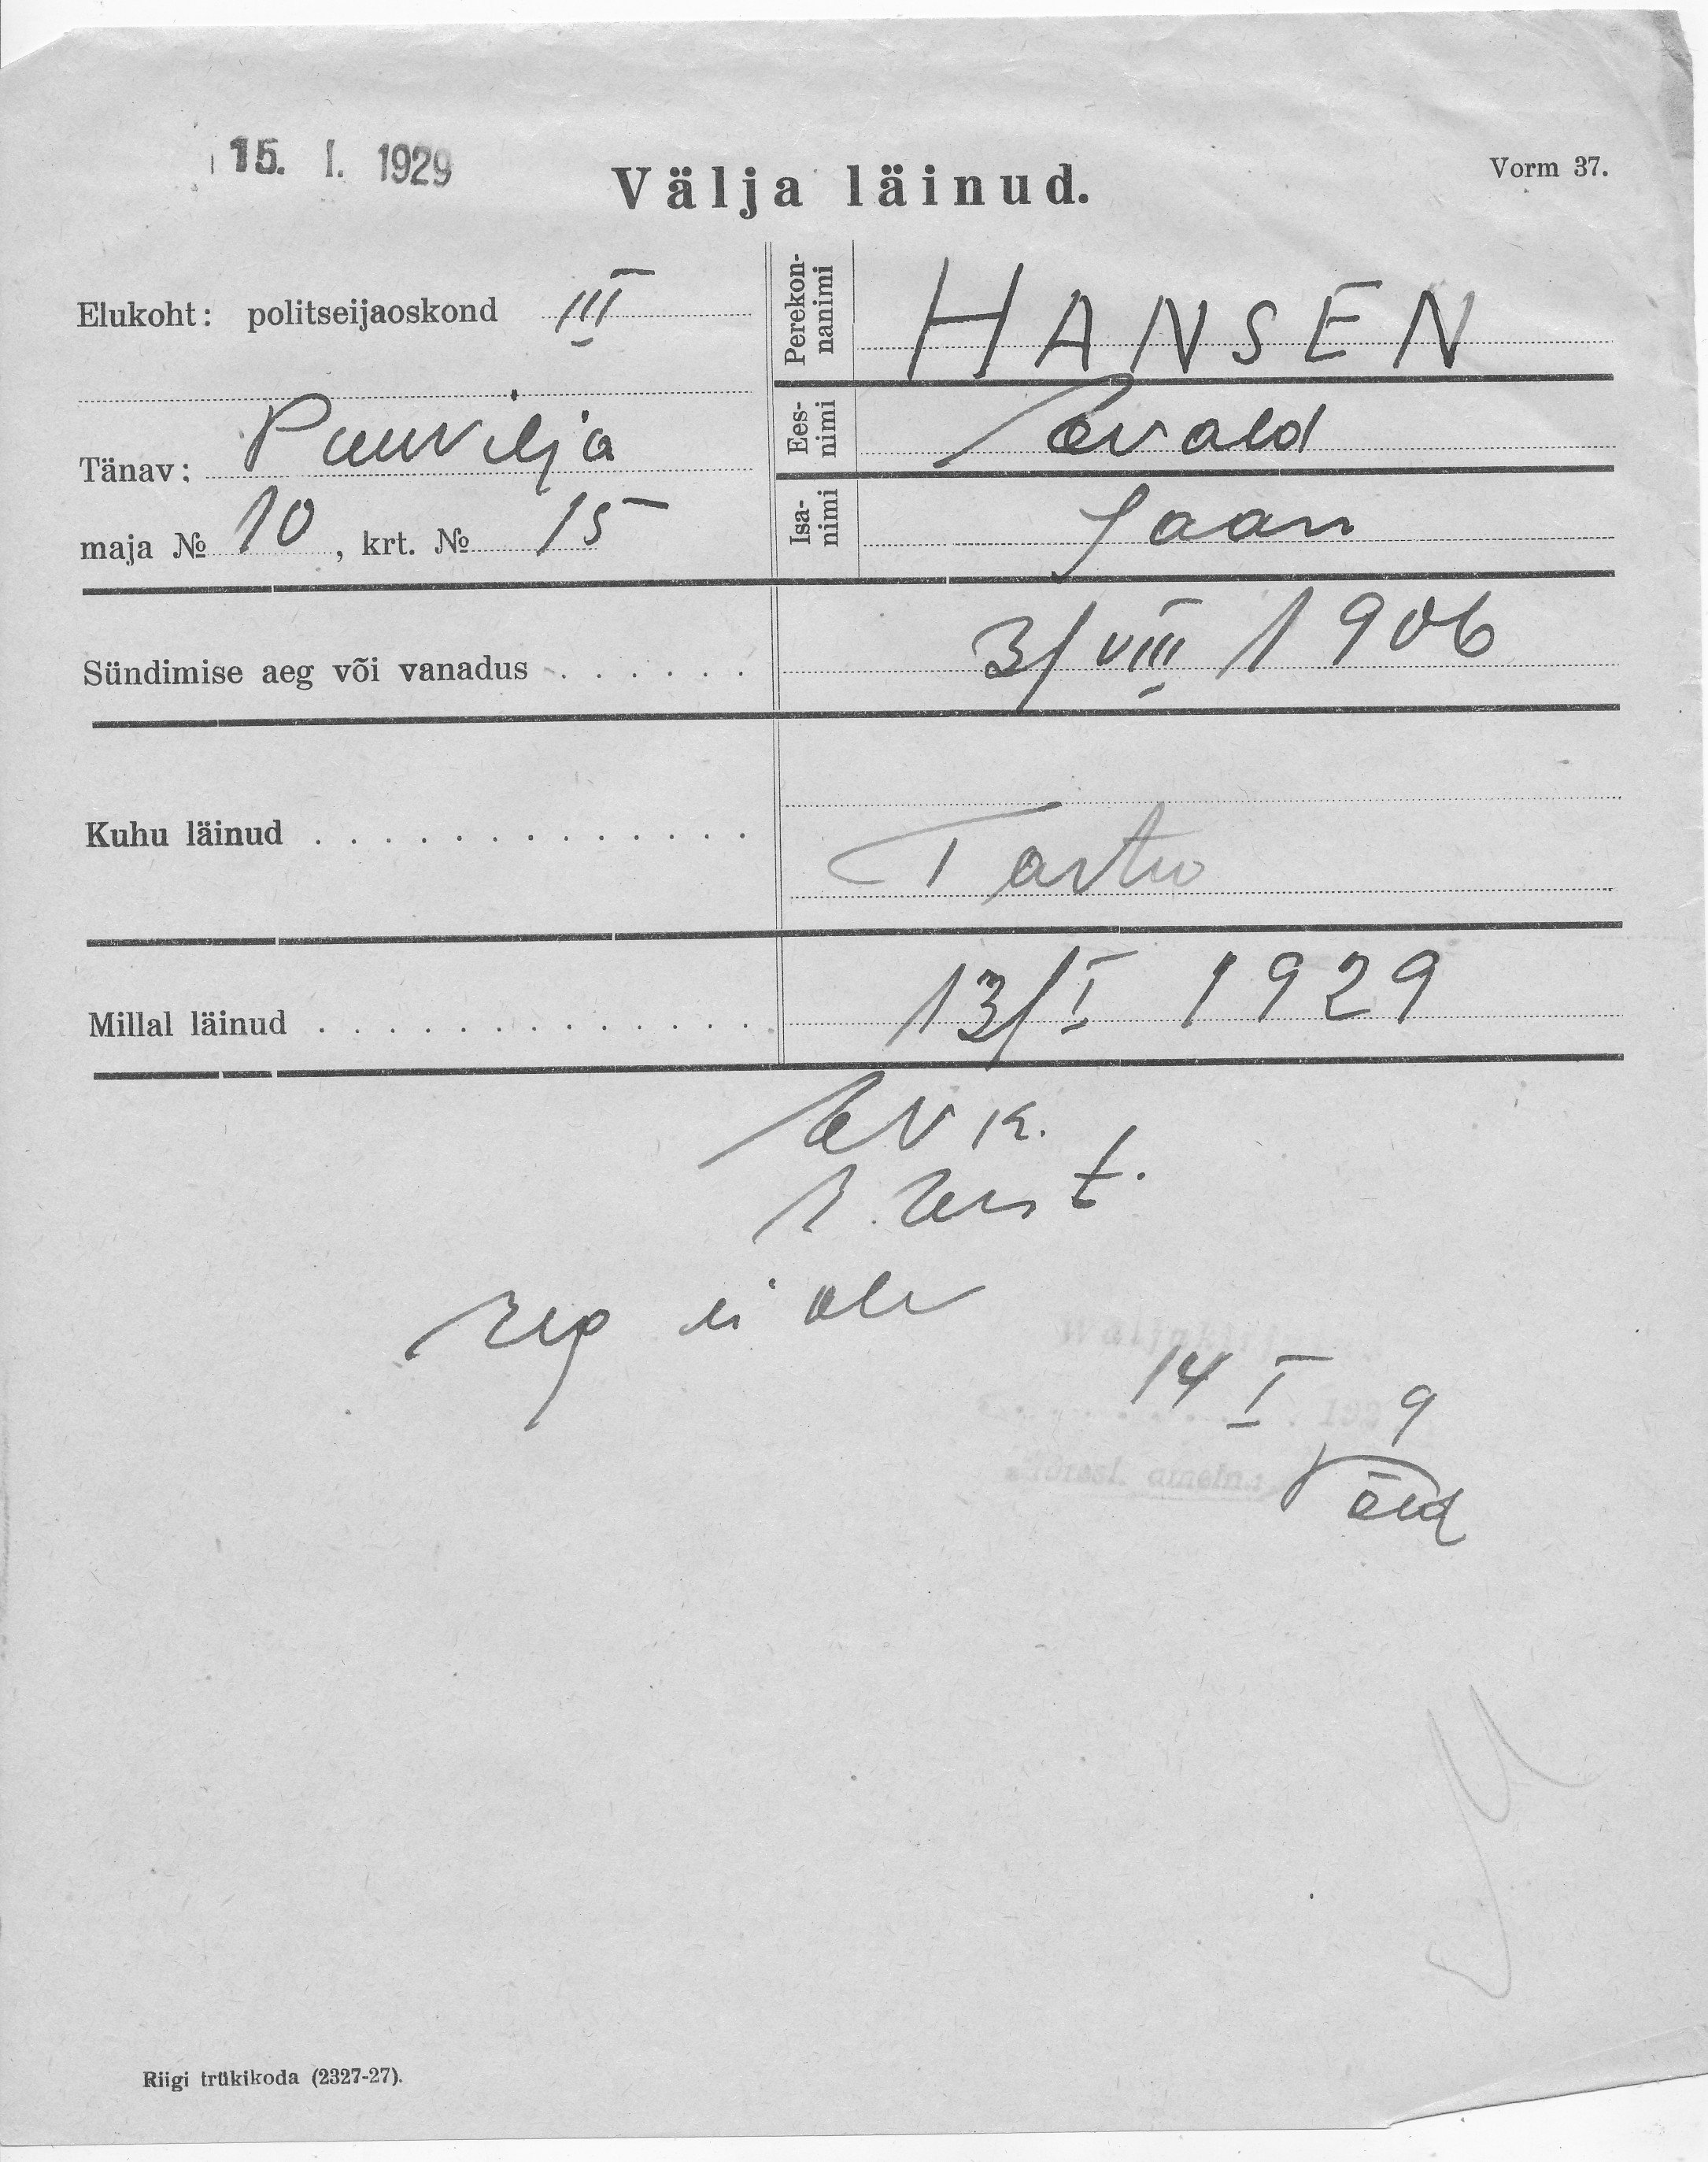 15. I. 1929
Välja läinud.
Vorm 37.
Elukoht: politseijaoskond III
Tänav: Puuvilja
maja № 10, krt. № 15
Perekonnanimi HANSEN
Eesnimi Evald
Isanimi Jaan
Sündimise aeg või vanadus . . . . . . 3/VIII 1906
Kuhu läinud . . . . . . . . . . . . . Tartu
Millal läinud . . . . . . . . . . . . . . 13/I 1929
EV k.
ei ole
14 I 9
Riigi trükikoda (2327-27).